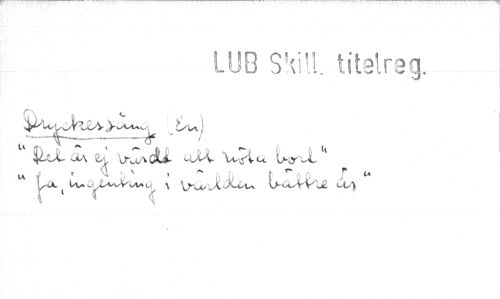 LUB Skill. titelreg.
Dryckessång (En)
"Det är ej värdt att nöta bort"
"Ja, ingenting i världen bättre är"